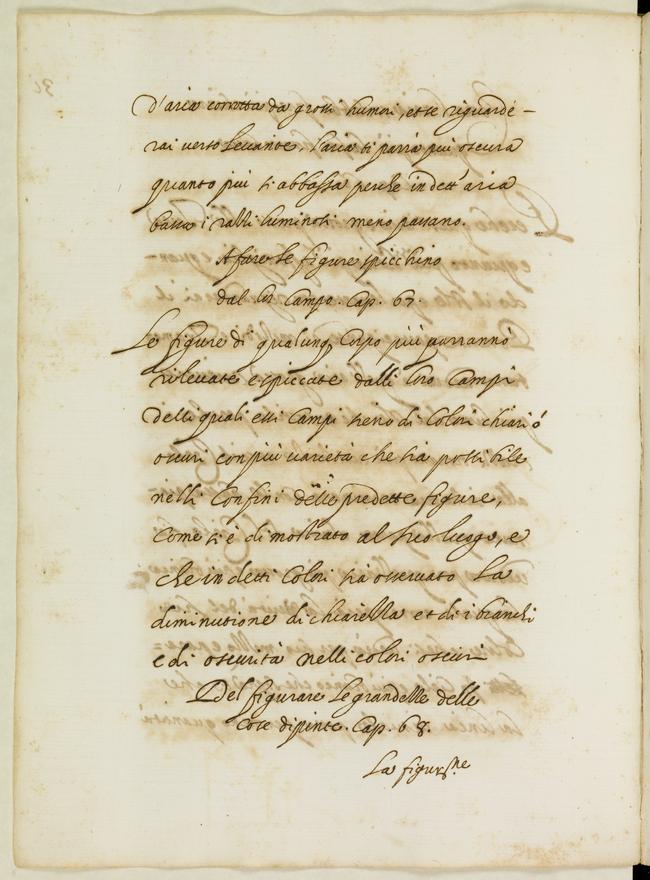 d'aria corrotta da grossi humori, et se riguarde-
rai verso Levante. l'aria ti parrà più oscura
quanto più si abbassa perche in dett'aria
bassa i raggi luminosi meno passano.
A fare le figure spicchino
dal lor Campo. Cap. 67.
Le figure di qualunq Corpo più parranno
rilevate e spiccate dalli loro Campi
delli quali essi Campi sieno di Colori chiari ó
oscuri con più varietà che sia possibile
nelli Confini delle predette figure,
come si è dimostrato al suo luogo, e
che in detti Colori sia osservato La
diminutione di chiarezza et di i bianchi
e di oscurità nelli colori oscuri
Del figurare le grandezze delle
Cose dipinte. Cap. 68.
La figurne